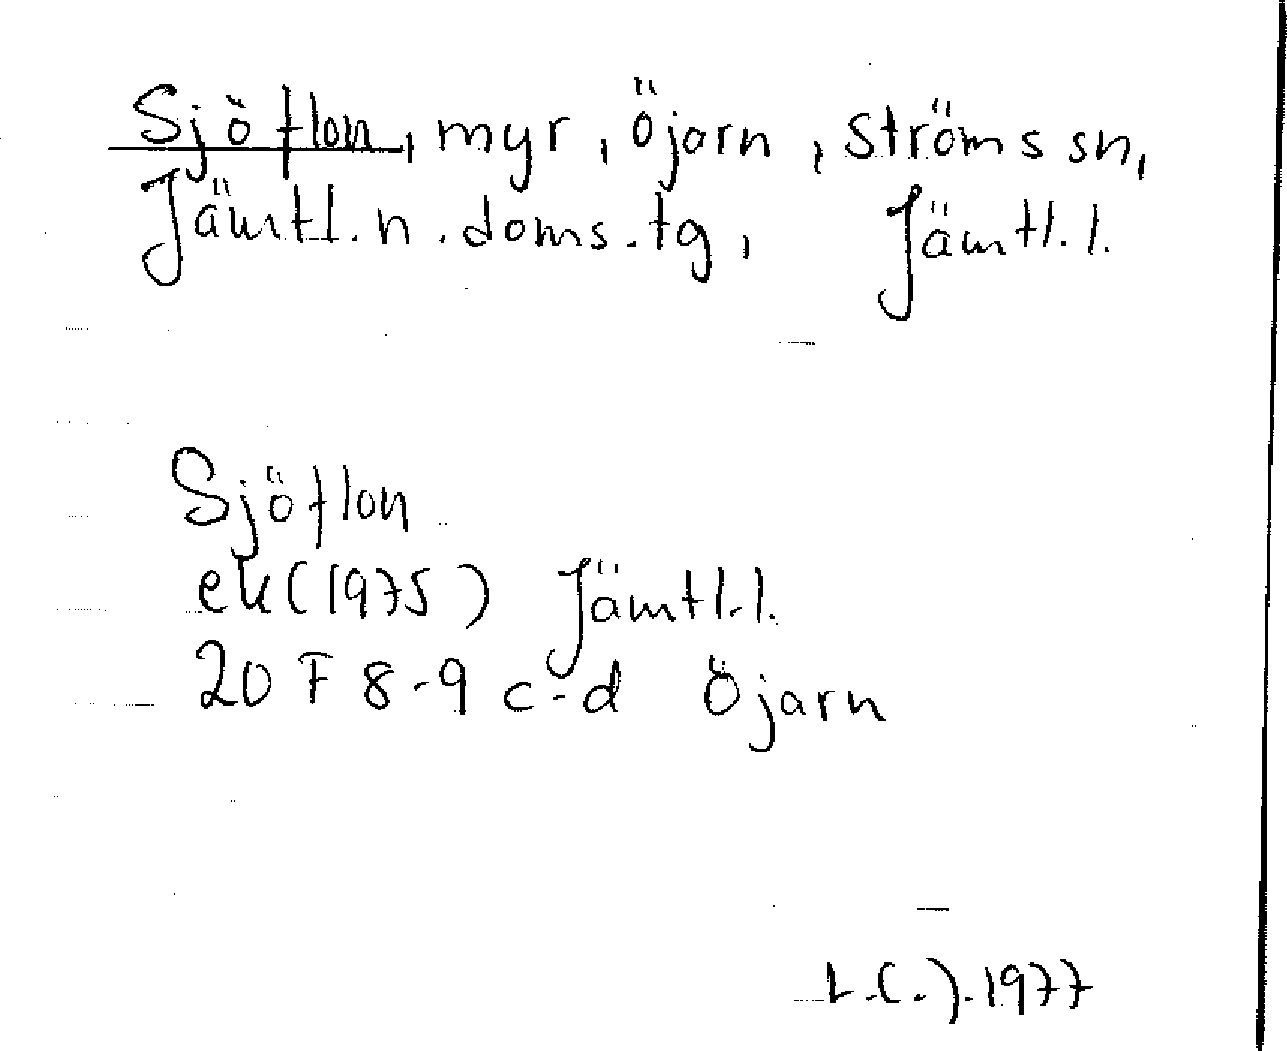 Sjöflon, myr, Öjarn, Ströms sn,
Jämtl. n. doms. tg, Jämtl. l.
Sjöflon
ek (1975) Jämtl. l.
20 F 8-9 c-d Öjarn
L.C.J. 1977